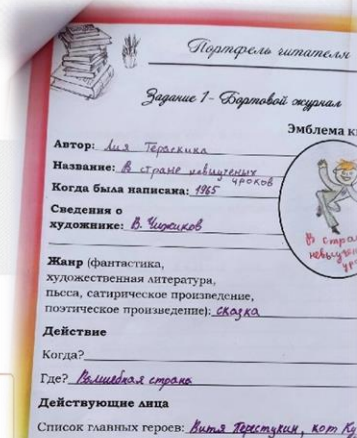 Портфель читателя
Задание 1 - Бортовой журнал
Эмблема к
Автор: Лия Гераскина
Название: В стране невыученых уроков
Когда была написана: 1965
Сведения о
художнике: В. Чижиков
В стра
невыучен
ур
Жанр (фантастика,
художественная литература,
пьсса, сатирическое произведение,
поэтическое произведение): сказка
Действие
Когда?
Где? Волшебная страна
Действующие лица
Список главных героев: Витя Перестукин, кот Ку